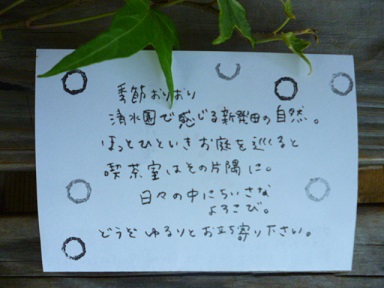 季節おりおり
清水園で感じる新発田の自然。
ほっとひといきお庭を巡ると
喫茶室はその片隅に。
日々の中にちいさな
よろこび。
どうぞゆるりとお立ち寄り下さい。